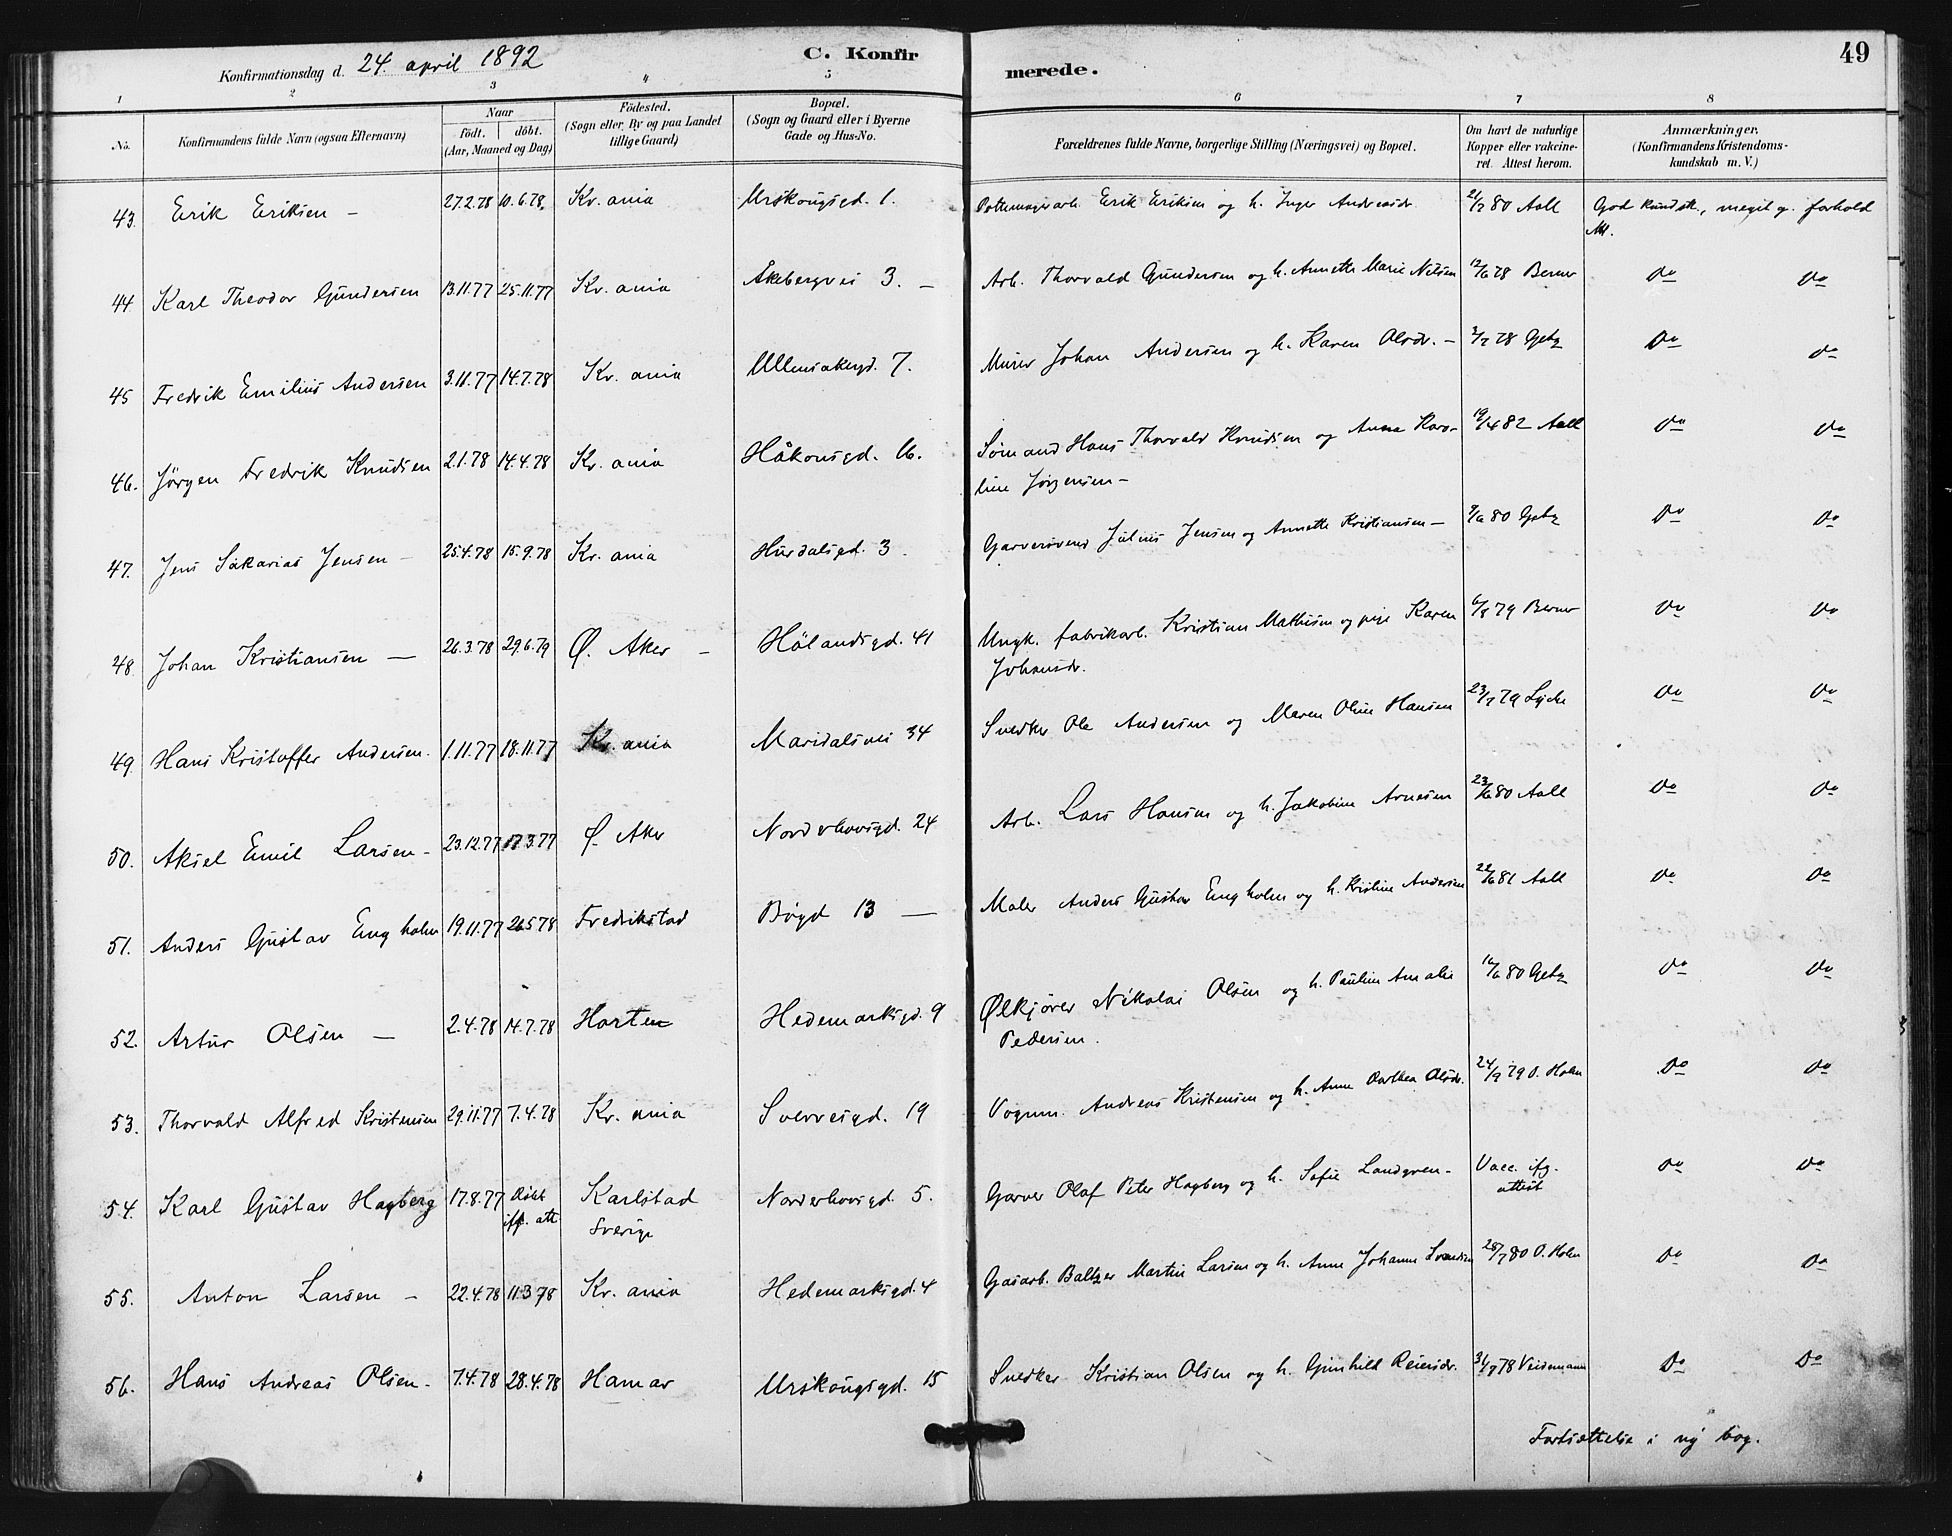 Konfirmationsdag d. 24. april 1892
C. Konfirmerede.
49
1 2 3 4 5 6 7 8
No. Konfirmandens fulde Navn (ogsaa Efternavn) Naar født. døbt. (Aar, Maaned og Dag) Fødested. (Sogn eller By og paa Landet tillige Gaard) Bopæl. (Sogn og Gaard eller i Byerne Gade og Hus-No. Forældrenes fulde Navne, borgerlige Stilling (Næringsvei) og Bopæl. Om havt de naturlige Kopper eller vakcineret. Attest herom. Anmærkninger. (Konfirmandens Kristendomskundskab m. V.)
43. Erik Eriksen – 27.2.78 10.6.78. Kr.ania Urskougsgd. 1. Pottemagerarb. Erik Eriksen og h. Inger Andreasdr. 80 Aall God kundsk., meget g. forhold
44 Karl Theodor Gundersen 13.11.77 25.11.77 Kr.ania Åkebergvei 3. – Arb. Thorvald Gundersen og h. Annette Marie Nilsen 12/6 78 Berner do do
45 Fredrik Emilius Andersen 3.11.77 14.7.78 Kr.ania Ullensakergd. 7. Murer Johan Andersen og h. Karen Olsdr. – 78 Getz do do
46. Jörgen Fredrik Knudsen 2.1.78 14.4.78 Kr.ania Håkonsgd. 16. Sömand Hans Thorvald Knudsen og Anna Karo-
line Jörgensen –
19/4 82 Aall do do
47. Jens Sakarias Jensen – 25.4.78 15.9.78 Kr.ania Hurdalsgd. 3. Garversvend Julius Jensen og Annette Kristiansen – 9/6 80 Getz do do
48 Johan Kristiansen – 26.3.78 29.6.79 Ø. Aker – Hölandsgd. 41 Ungk. fabrikarb. Kristian Mathisen og pige Karen
Johansdr.
6/8 79 Berner do do
49. Hans Kristoffer Andersen. 1.11.77 18.11.77 Kr.ania Maridalsvei 34 Snedker Ole Andersen og Maren Oline Hansen 23/7 79 Lyche do do
50. Aksel Emil Larsen – 23.12.77 17.3.77 Ø. Aker Norderhovsgd. 24 Arb. Lars Hansen og h. Jakobine Arnesen 23/6 80 Aall do do
51. Anders Gustav Engholm 19.11.77 26.5.78 Fredrikstad Bøgd 13 – Maler Anders Gustav Engholm og h. Kristine Andersen 22/6 81 Aall do do
52. Artur Olsen – 2.4.78 14.7.78 Horten Hedemarksgd. 9 Ølkjører Nikolai Olsen og h. Pauline Amalie
Pedersen.
16/6 80 Getz do do
53. Thorvald Alfred Kristensen 29.11.77 7.4.78 Kr.ania Sverresgd. 19 Vognm. Andreas Kristensen og h. Anne Dorthea Olsdr. 24/9 79 O. Holm do do
54. Karl Gustav Hagberg 17.8.77 Døbt
iflg. att. Karlstad
Sverige Norderhovsgd 5. Garver Olaf Peter Hagberg og h. Sofie Landgren – Vacc. ifg.
attest do do
55. Anton Larsen – 22.4.78 11.3.78 Kr.ania Hedemarksgd. 4 Gasarb. Baltzer Martin Larsen og h. Anne Johanne Svendsen 28/7 80 O. Holm do do
56. Hans Andreas Olsen – 7.4.78 28.4.78 Hamar Urskougsgd. 15 Snedker Kristian Olsen og h. Gunhild Reiersdr. 78 Veidemann do do
Fortsættelse i ny bog.